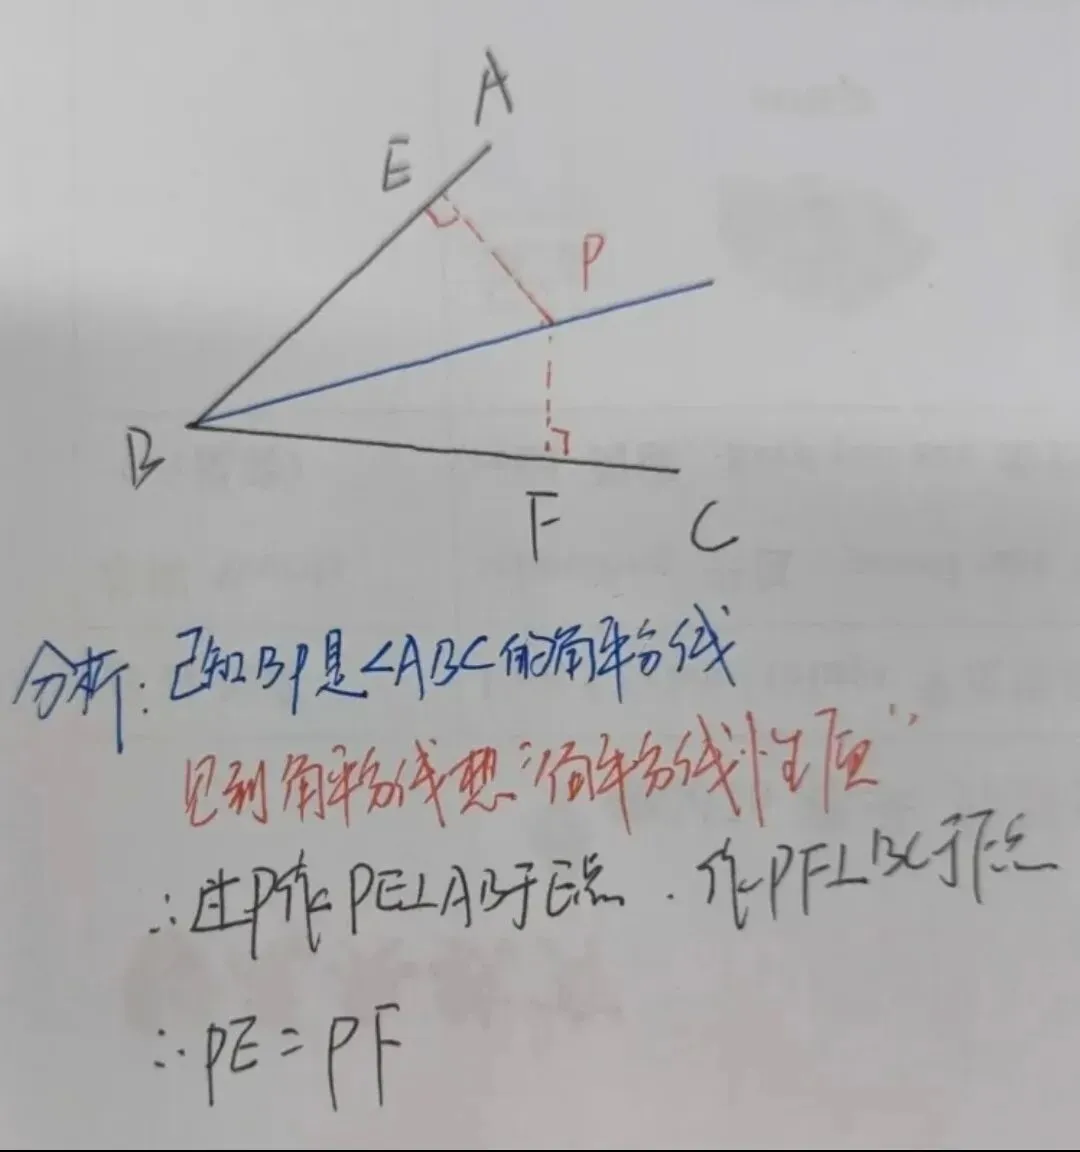 A
E
P
B
F
C
分析：已知BP是∠ABC的角平分线
见到角平分线想“角平分线性质”
∴过P作PE⊥AB于E点．作PF⊥BC于F点
∴PE=PF